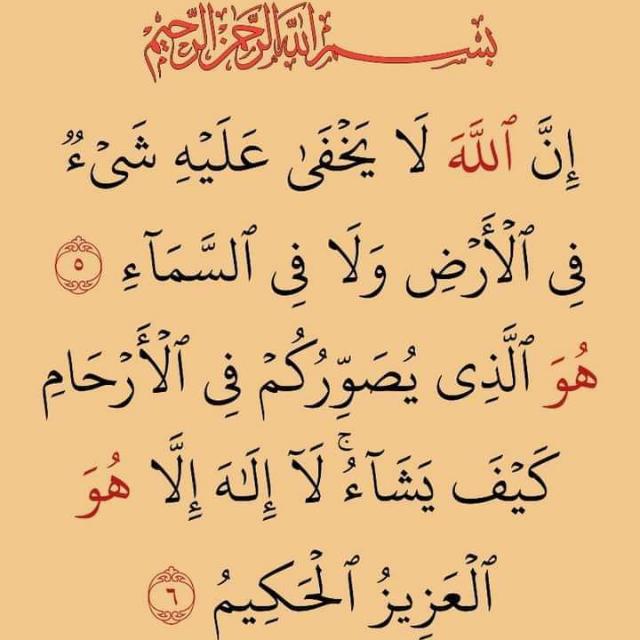 بسم الله الرحمن الرحيم
إِنَّ ٱللَّهَ لَا يَخْفَىٰ عَلَيْهِ شَىْءٌ
فِى ٱلْأَرْضِ وَلَا فِى ٱلسَّمَآءِ ٥
هُوَ ٱلَّذِى يُصَوِّرُكُمْ فِى ٱلْأَرْحَامِ
كَيْفَ يَشَآءُ ۚ لَآ إِلَـٰهَ إِلَّا هُوَ
ٱلْعَزِيزُ ٱلْحَكِيمُ ٦